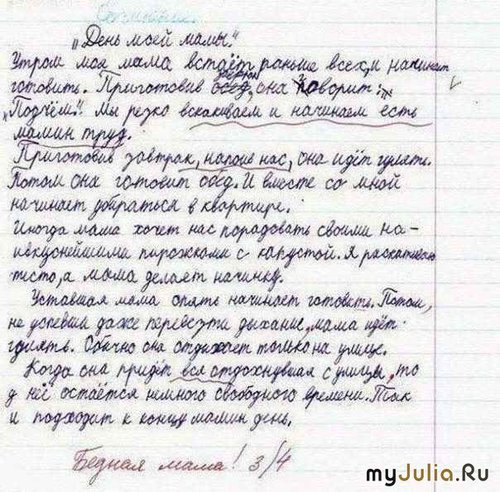 Сочинение.
„День моей мамы."
Утром моя мама встаёт раньше всех, и начинает
готовить. Приготовив обед, она говорит:
„Подъём!" Мы резко вскакиваем и начинаем есть
мамин труд.
Приготовив завтрак, напоив нас, она идёт гулять.
Потом она готовит обед. И вместе со мной
начинает убираться в квартире.
Иногда мама хочет нас порадовать своими на-
ивкуснейшими пирожками с капустой. Я раскатываю
тесто, а мама делает начинку.
Уставшая мама опять начинает готовить. Потом,
не успевши даже перевезти дыхание, мама идёт
гулять. Обычно она отдыхает только на улице.
Когда она придёт вся отдохнувшая с улицы, то
у неё остаётся немного свободного времени. Так
и подходит к концу мамин день.
Бедная мама! 3/4
myJulia.Ru